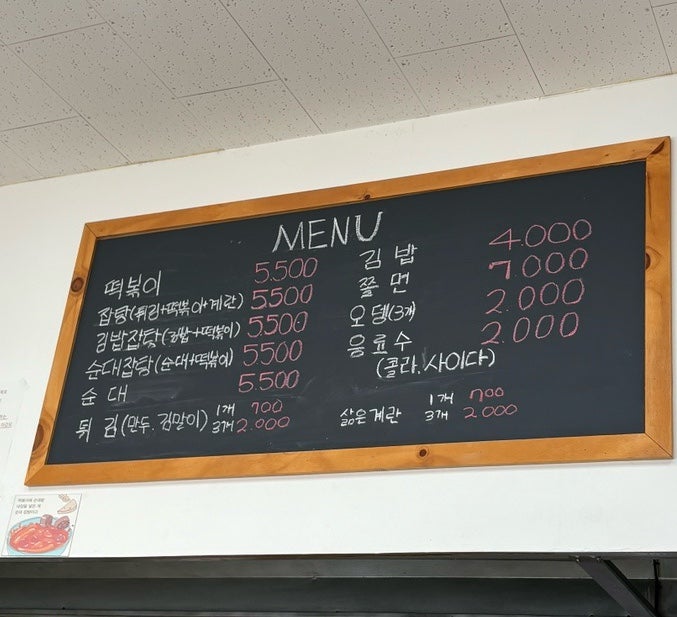 MENU
떡볶이 5.500
잡탕(튀김+떡볶이+계란) 5500
김밥잡탕(김밥+떡볶이) 5500
순대잡탕(순대+떡볶이) 5500
순대 5.500
튀김(만두.김말이) 1개 700
3개 2.000
김밥 4.000
쫄면 7.000
오뎅(3개) 2.000
음료수 2.000
(콜라.사이다)
삶은계란 1개 700
3개 2000